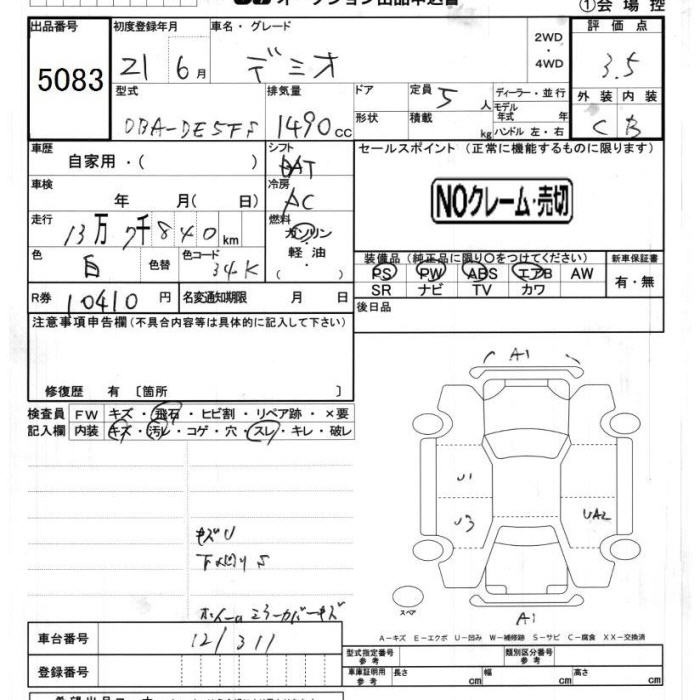 オークション出品申込書
①会場控
出品番号 初度登録年月 車名・グレード 2WD・4WD 評価点
5083 21 6月 デミオ 3.5
型式 排気量 ドア 定員 5 人 ディーラー・並行 外装 内装
DBA-DE5FS 1490cc 形状 積載 kg モデル年式 年 ハンドル 左・右 C B
車歴 自家用・( ) シフト AT セールスポイント(正常に機能するものに限ります)
車検 年 月( 日) 冷房 AC
NOクレーム・売切
走行 13万7千840km 燃料 ガソリン・軽油・( )
色 白 色替 色コード 34K
装備品(純正品に限り○をつけてください) 新車保証書
PS PW ABS エアB AW 有・無
SR ナビ TV カワ
R券 10410円 名変通知期限 月 日 後日品
注意事項申告欄(不具合内容等は具体的に記入して下さい)
修復歴 有 〔箇所 〕
検査員 FW キズ・飛石・ヒビ割・リペア跡・×要
記入欄 内装 キズ・汚レ・コゲ・穴・スレ・キレ・破レ
A1
U1
U3
UA2
キズU
下廻りS
ホイールミラーカバーキズ
スペア
A1
A-キズ E-エクボ U-凹み W-補修跡 S-サビ C-腐食 XX-交換済
車台番号 121311
型式指定番号 参考 類別区分番号 参考
登録番号 車庫証明用 参考 長さ cm 幅 cm 高さ cm